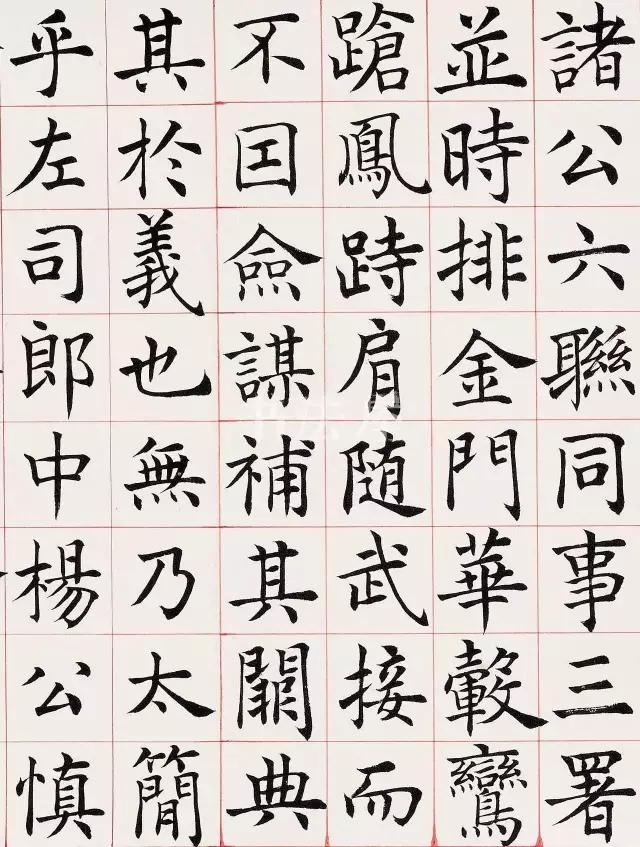 諸公六聯同事三署
並時排金門華轂鸞
蹌鳳跱肩随武接而
不囙僉謀補其闕典
其於義也無乃太簡
乎左司郎中楊公慎